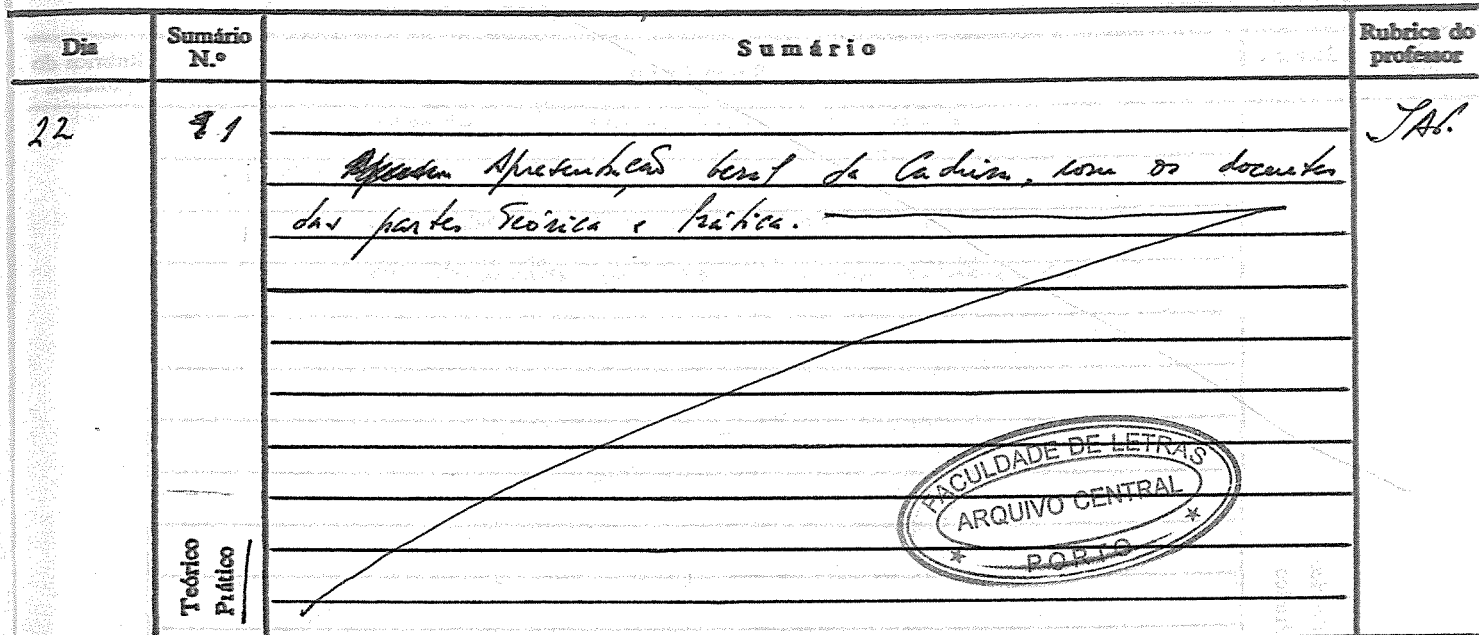 Dia
Sumário N.º
Sumário
Rubrica do professor
22
1
Apresentação Geral da Cadeira, com os docentes
das partes Teórica e Prática.
FACULDADE DE LETRAS
ARQUIVO CENTRAL
PORTO
Teórico
Prático